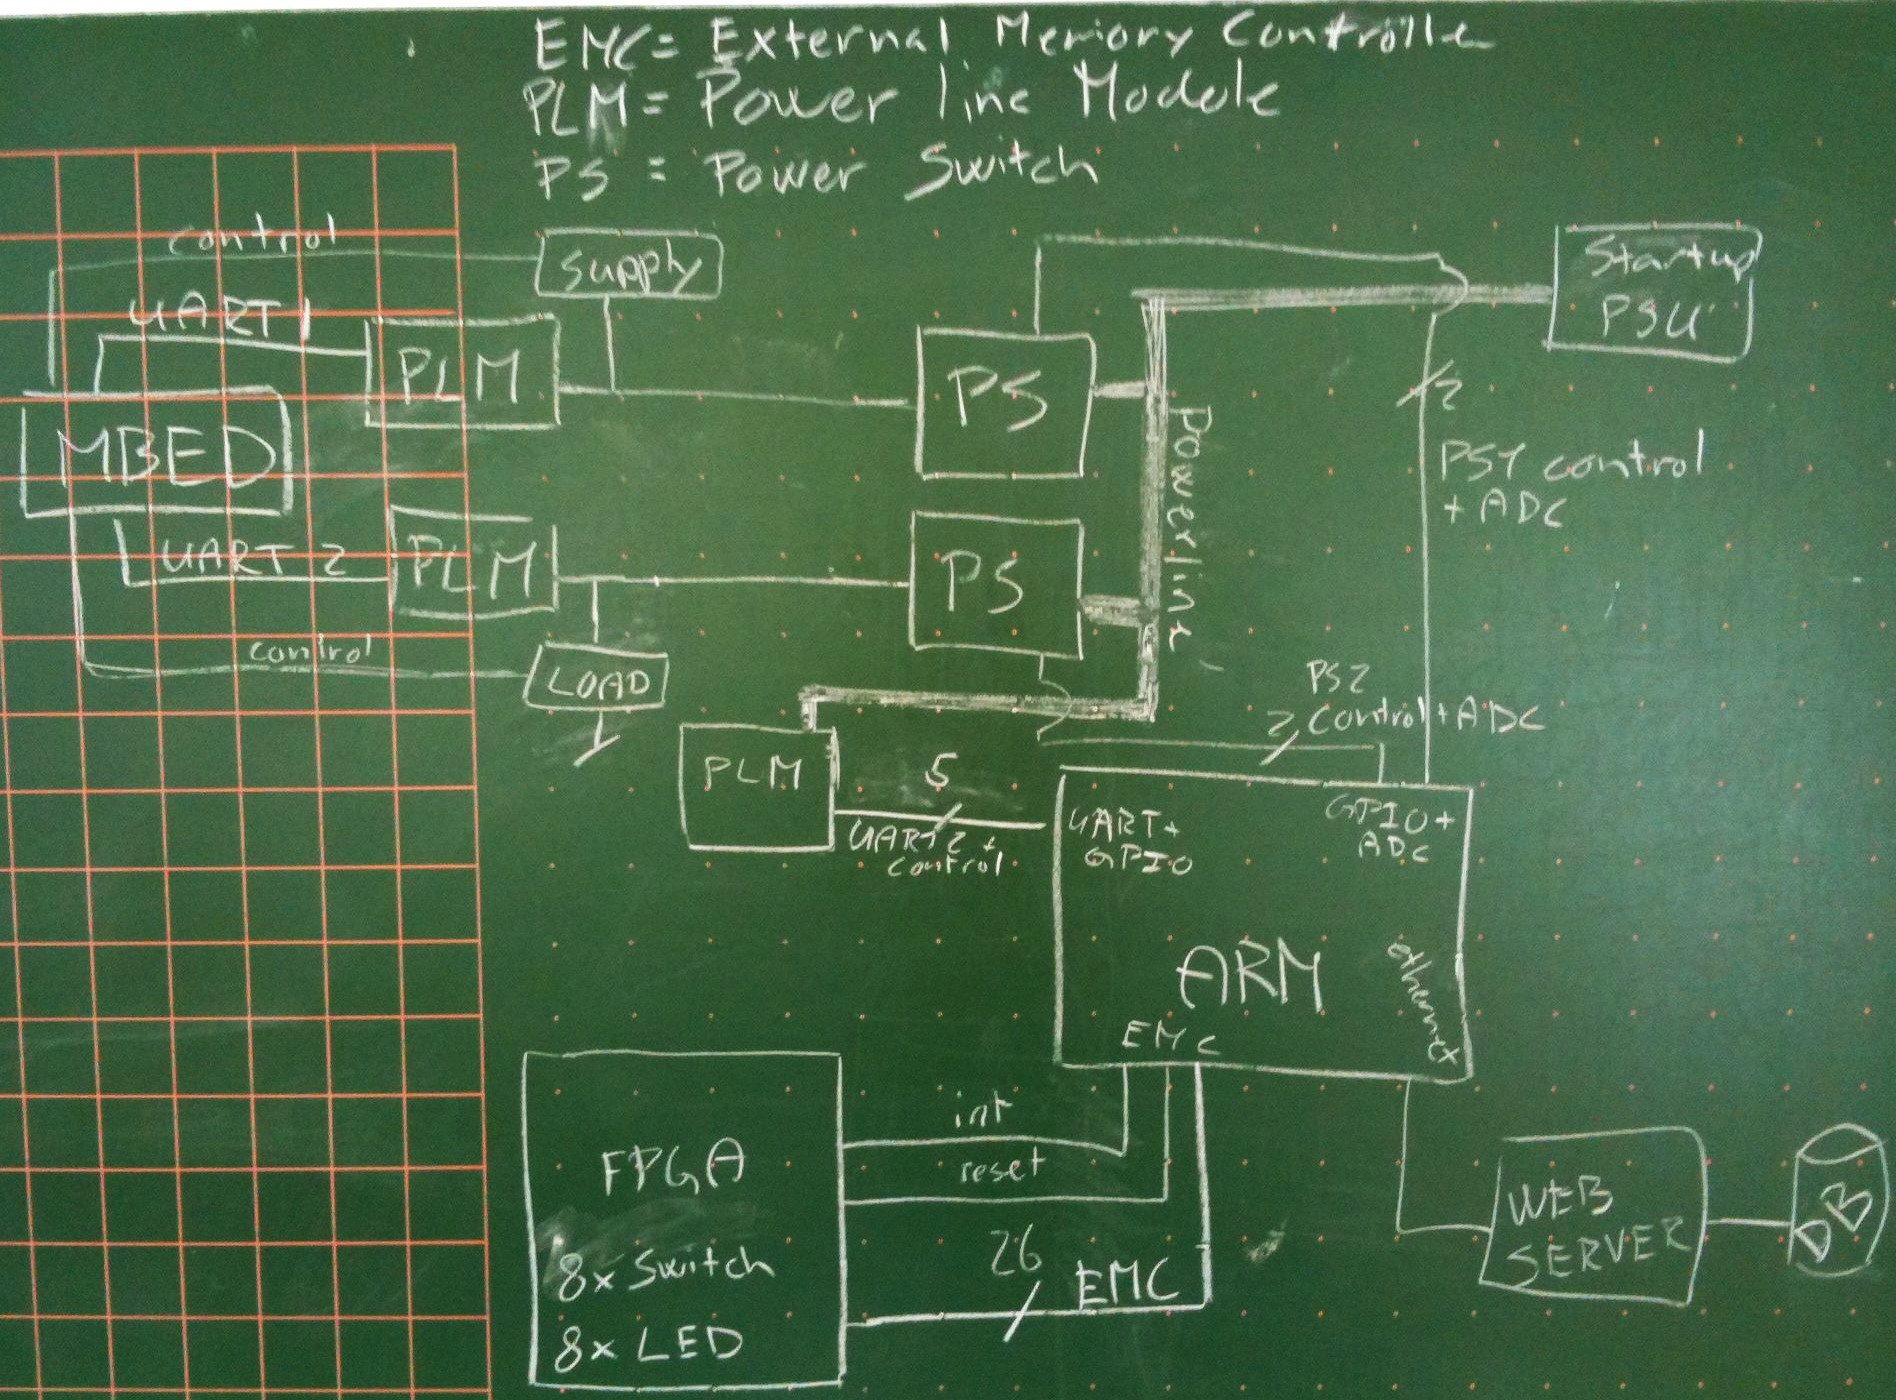 EMC = External Memory Controller
PLM = Power line Module
PS = Power Switch
control
supply
Startup
PSU
UART 1
PLM
PS
2
MBED
Powerline
PS1 control
+ ADC
UART 2
PLM
PS
control
LOAD
PS2
control + ADC
2
PLM
5
UART2 +
control
UART +
GPIO
GPIO +
ADC
ARM
ethernet
EMC
int
reset
FPGA
8x Switch
8x LED
26
EMC
WEB
SERVER
DB